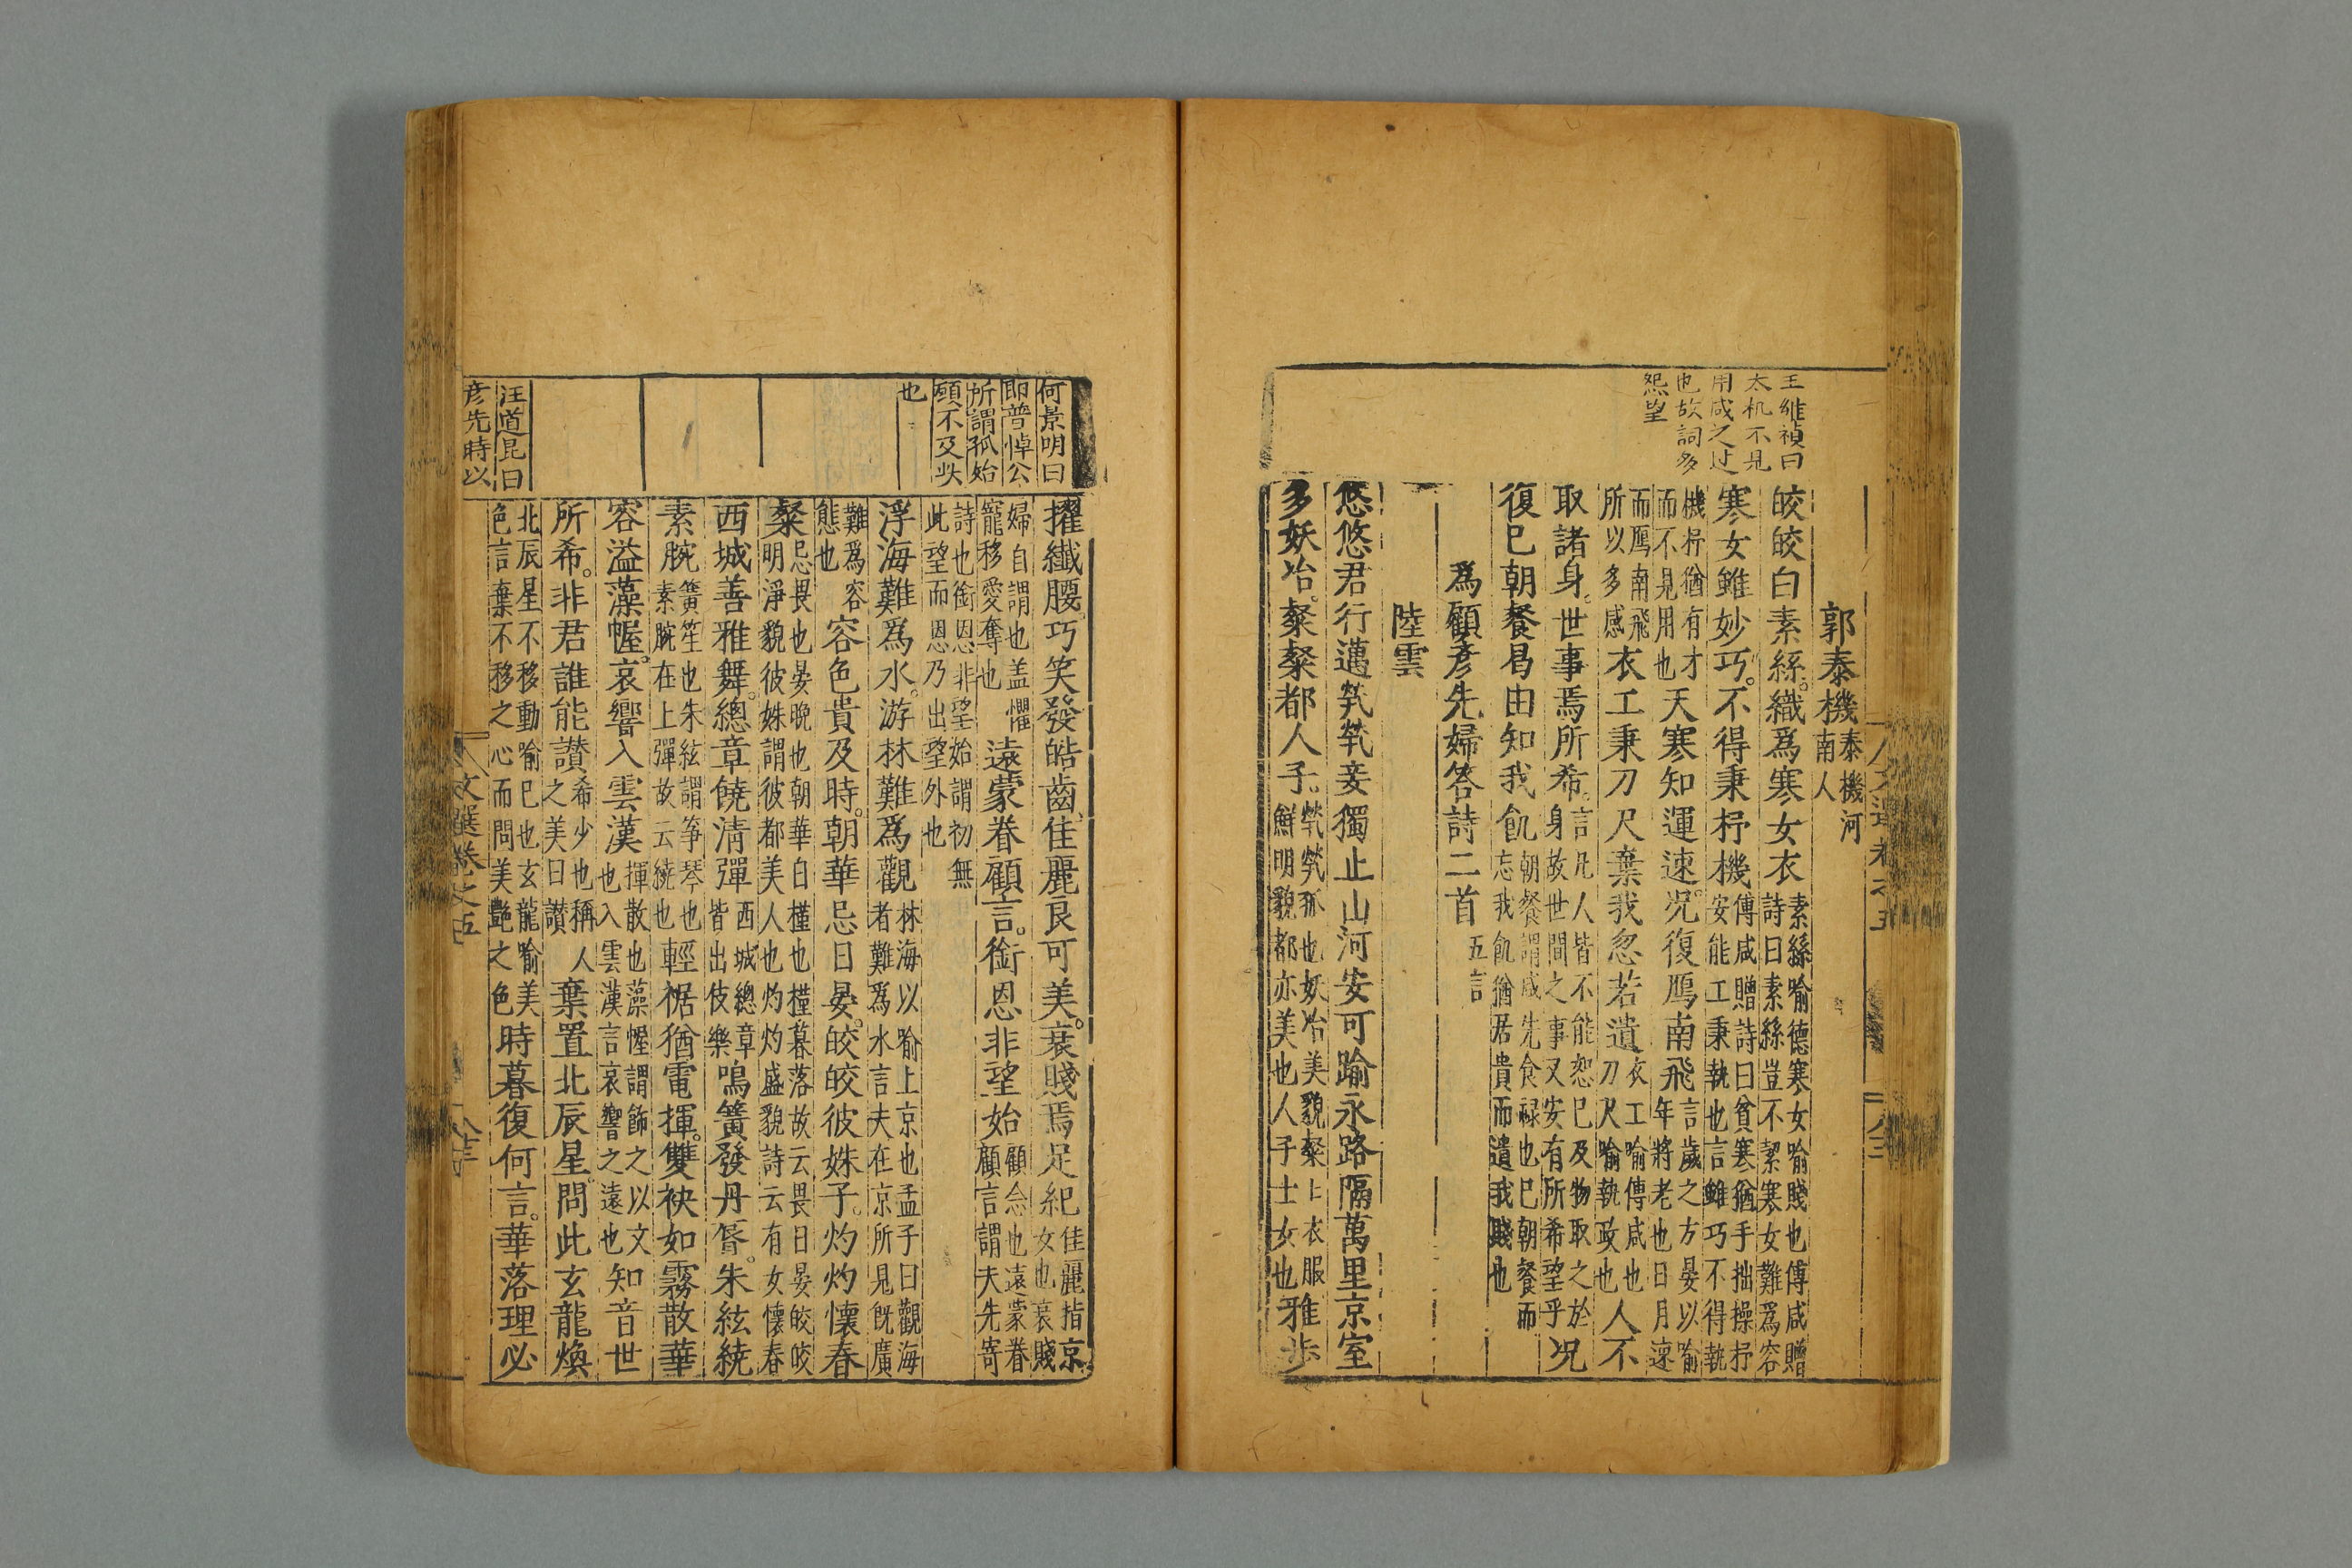 王維禎曰
太机不見
用咸之过
也故詞多
怨望
郭泰機泰機河南人
皎皎白素絲。織爲寒女衣素絲喻德寒女喻賤也傅咸贈詩曰素絲豈不絜寒女難爲容
寒女雖妙巧。不得秉杼機傅咸贈詩曰貧寒猶手拙操杼安能工秉執也言雖巧不得執
機杼猶有才而不見用也天寒知運速。况復鴈南飛言歲之方晏以喻年將老也日月速
而鴈南飛所以多感衣工秉刀尺棄我忽若遺衣工喻傅咸也刀尺喻執政也人不
取諸身。世事焉所希。言凡人皆不能恕已及物取之於身故世間之事又安有所希望乎况
復已朝餐曷由知我飢朝餐謂咸先食禄也已朝餐而忘我飢猶君貴而遺我賤也
爲顧彥先婦答詩二首五言
陸雲
悠悠君行邁煢煢妾獨止山河安可踰永路隔萬里京室
多妖冶。粲粲都人子。煢煢孤也妖冶美貌粲上衣服鮮明貌都亦美也人子士女也雅步
何景明曰
即普悼公
所謂孤始
願不及此
也
汪道昆曰
彥先時以
擢纖腰。巧笑發皓齒佳麗良可美。衰賤焉足紀佳麗指京女也衰賤
婦自謂也盖懼寵移愛奪也遠蒙眷顧言。銜恩非望始顧念也遠蒙眷顧言謂夫先寄
詩也銜恩非望始謂初無此望而恩乃出望外也
浮海難爲水。游林難爲觀林海以喻上京也孟子曰觀海者難爲水言夫在京所見旣廣
難爲容態也容色貴及時。朝華忌日晏。皎皎彼姝子。灼灼懷春
粲忌畏也晏晚也朝華白槿也槿暮落故云畏日晏皎皎明淨貌彼姝謂彼都美人也灼灼盛貌詩云有女懷春
西城善雅舞。總章饒清彈西城總章皆出伎樂鳴簧發丹脣。朱絃繞
素腕簧笙也朱絃謂箏琴也素腕在上彈故云繞也輕裾猶電揮。雙袂如霧散華
容溢藻幄。哀響入雲漢揮散也藻幄謂飾之以文也入雲漢言哀響之遠也知音世
所希。非君誰能讃希少也稱人之美曰讃棄置北辰星。問此玄龍煥
北辰星不移動喻已也玄龍喻美色言棄不移之心而問美艷之色時暮復何言。華落理必
文選卷之五